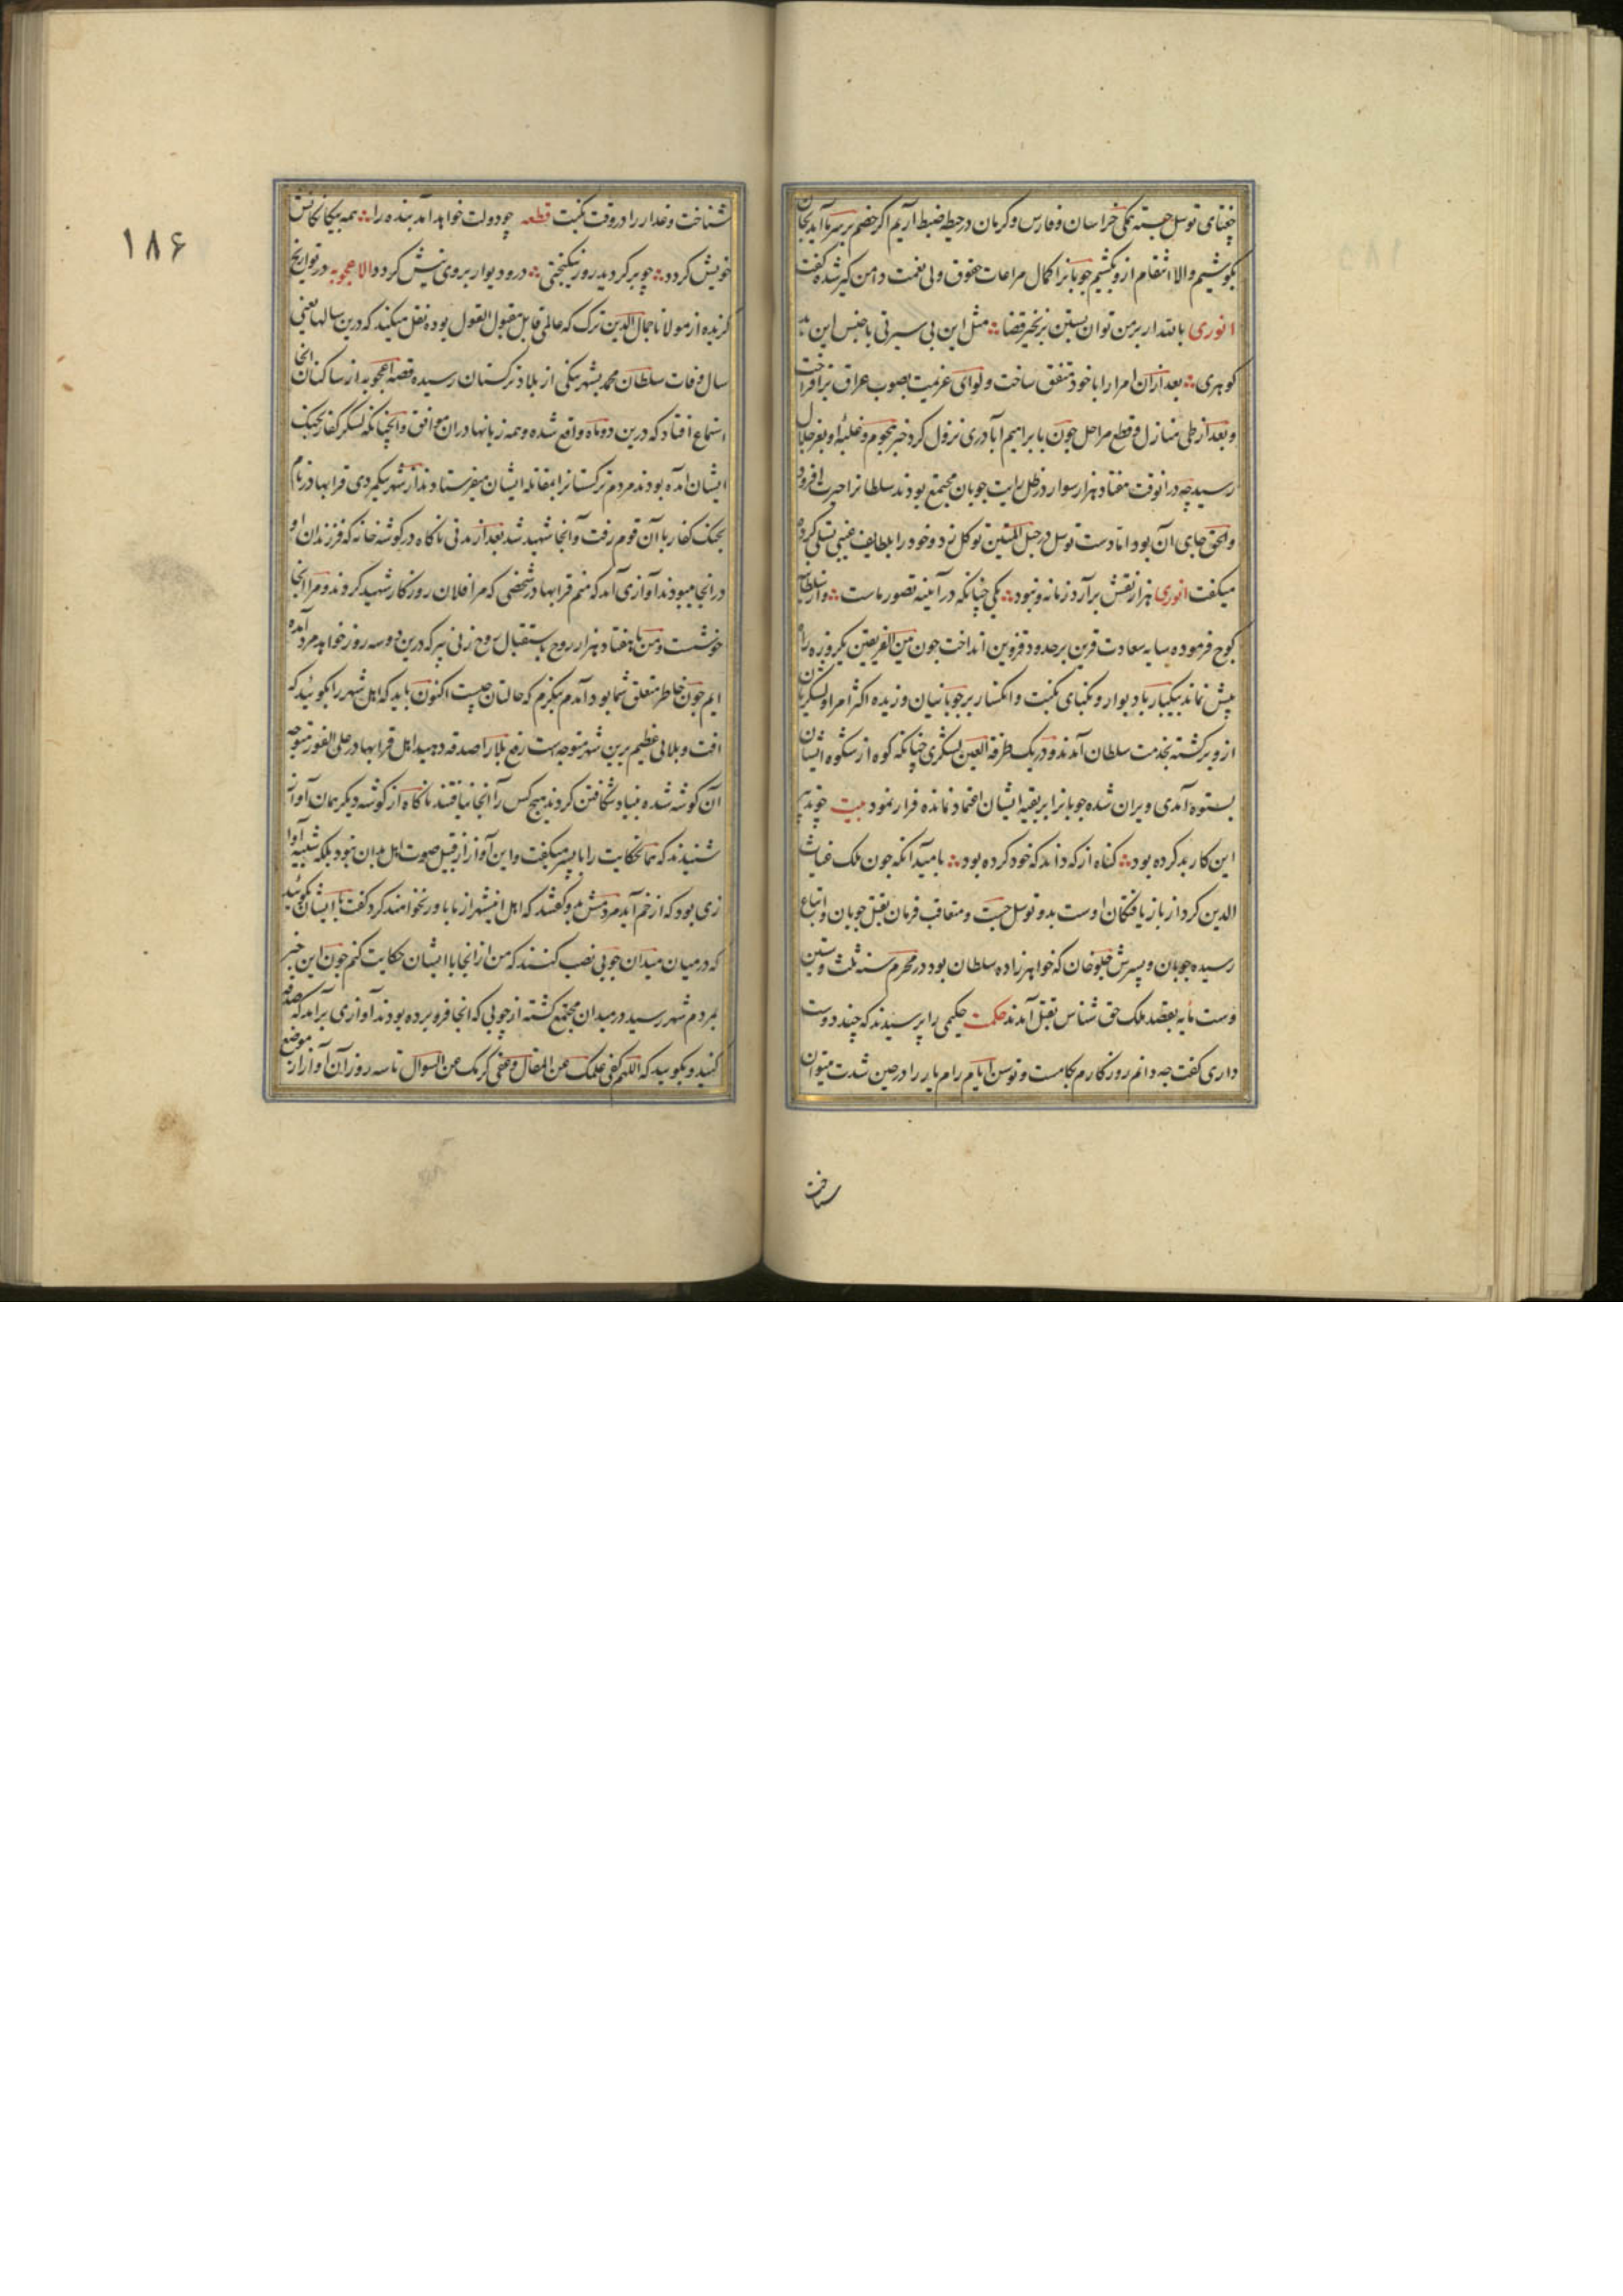 چغتای توسل جسته تمکی خراسان و فارس و کرمان در حیطه ضبط اریم اگر خصم بر سر ما آید بجان
بکوشیم والا انتقام ازو بکشیم جوبانرا کمال مراعات حقوق ولی نعمت دامن کیر شده گفت
انوری با اقتدار برمن توان بستن بزنجیر قضا مثل این بی سیرتی با جنس این
کوهری بعد ازان امرا را با خود متفق ساخت و لوای عزیمت بصوب عراق برافراخت
و بعد از طی منازل و قطع مراحل چون بابراهیم آباد ری نزول کرد خبر هجوم و غلبه او بعز جلال
رسید چه در انوقت هفتاد هزار سوار در ظل رایت جوبان مجتمع بودند سلطانرا حیرت افزود
والحق جای آن بود اما دست توسل در حبل المتین توکل زد و خود را بلطایف غیبی تسلی کرده
میگفت انوری هزار نقش برآرد زمانه و نبود یکی چنانکه در آینه تصور ماست و از سلطانیه
کوچ فرموده سایه سعادت قرین بر حدود قزوین انداخت چون بین الفریقین یکروزه راه
بیش نماند بیکبار باد بوار و نکبای نکبت و انکسار بر جوبانیان وزیده اکثر امرا و لشکریان
ازو برگشته بخدمت سلطان آمدند و در یک طرفة العین لشکری چنانکه کوه از شکوه ایشان
بستوه آمدی ویران شده جوبانرا بر بقیه ایشان اعتماد نمانده فرار نمود بیت چو بد
این کار بد کرده بود گناه از که داند که خود کرده بود بامید آنکه چون ملک غیاث
الدین کرد از باز یافتگان اوست بدو توسل جست و متعاقب فرمان بقتل جوبان و اتباع
رسیده جوبان و پسرش جلوخان که خواهرزاده سلطان بود در محرم سنه ثلث وستین
وست مایه بقصد ملک حق شناس بقتل آمدند حکمت حکیمی را پرسیدند که چند دوست
داری گفت چه دانم روزگارم بکامست و توسن ایام رام یار را در حین شدت میتوان
ساخت
۱۸۶
شناخت و غدار را در وقت نکبت قطعه چو دولت خواهد آمد بنده را همه بیگانگانش
خویش کردد چو برکردید روز نیکبختی در و دیوار بر وی نیش کردد الاعجوبه در تواریخ
گزیده از مولانا جمال الدین ترک که عالم قابل مقبول القول بوده نقل میکند که درین سالها یعنی
سال وفات سلطان محمد بشهر ینکی از بلاد ترکستان رسیده قصه اعجوبه از ساکنان انجا
استماع افتاد که درین دو ماه واقع شده و همه زبانها دران موافق و آنچنانکه لشکر کفار بجنگ
ایشان آمده بودند مردم ترکستانرا بمقاتله ایشان میفرستادند از شهر ینکی مردی قرابهادر نام
بجنک کفار با آن قوم رفت و آنجا شهید شد بعد از مدتی ناگاه در گوشه خانه که فرزندان او
در انجا میبودند آوازی آمد که منم قرابهادر شخصی که مرا فلان روز کفار شهید کردند و مرا انجا
خوشست و من با هفتاد هزار روح باستقبال روح زنی پیر که درین دو سه روز خواهد مرد آمده
ایم چون خاطر متعلق شما بود آمدم بنگرم که حالتان چیست اکنون باید که اهل شهر را بگوئید که
افت و بلائی عظیم برین شهر متوجه است رفع بلا را صدقه دهید اهل قرابهادر علی الفور متوجه
آن گوشه شده بنیاد شکافتن کردند هیچ کس را آنجا نیافتند ناگاه از گوشه دیگر همان آواز
شنیدند که همان حکایت را با پسر میگفت و این آواز از قبیل صوت اهل بدان نبود بلکه شبیه آوا
زی بود که از خم آید مردمش بدو گفتند که اهل اینشهر از ما باور نخواهند کرد گفت با ایشان بگوئید
که در میان میدان چوبی نصب کنند که من از انجا با ایشان حکایت کنم چون این خبر
بمردم شهر رسید در میدان مجتمع گشته از چوبی که انجا فرو برده بودند آوازی برآمد که صدقه
کنید و بگویید که اللهم کفی علمک عن المقال و کفی کرمک عن السوال تا سه روز آن آواز از موضع